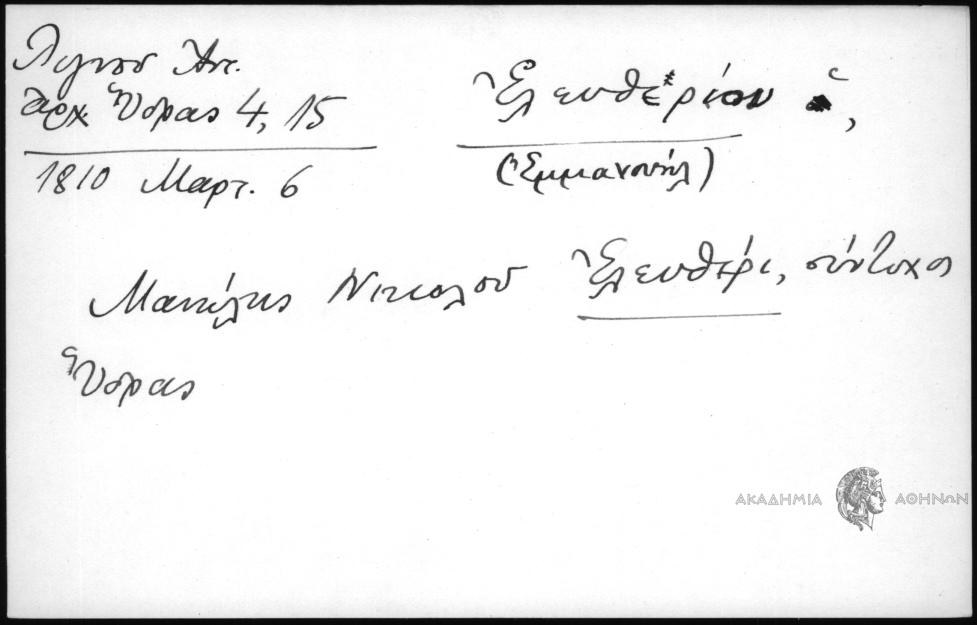 Λιγνού Ἀντ.
Ἀρχ Ὕδρας 4, 15
1810 Μαρτ. 6
Ἐλευθερίου ὁ,
(Ἐμμανουήλ)
Μανώλης Νικολοῦ Ἐλευθέρι, σύντυχος
Ὕδρας
ΑΚΑΔΗΜΙΑ ΑΘΗΝΩΝ